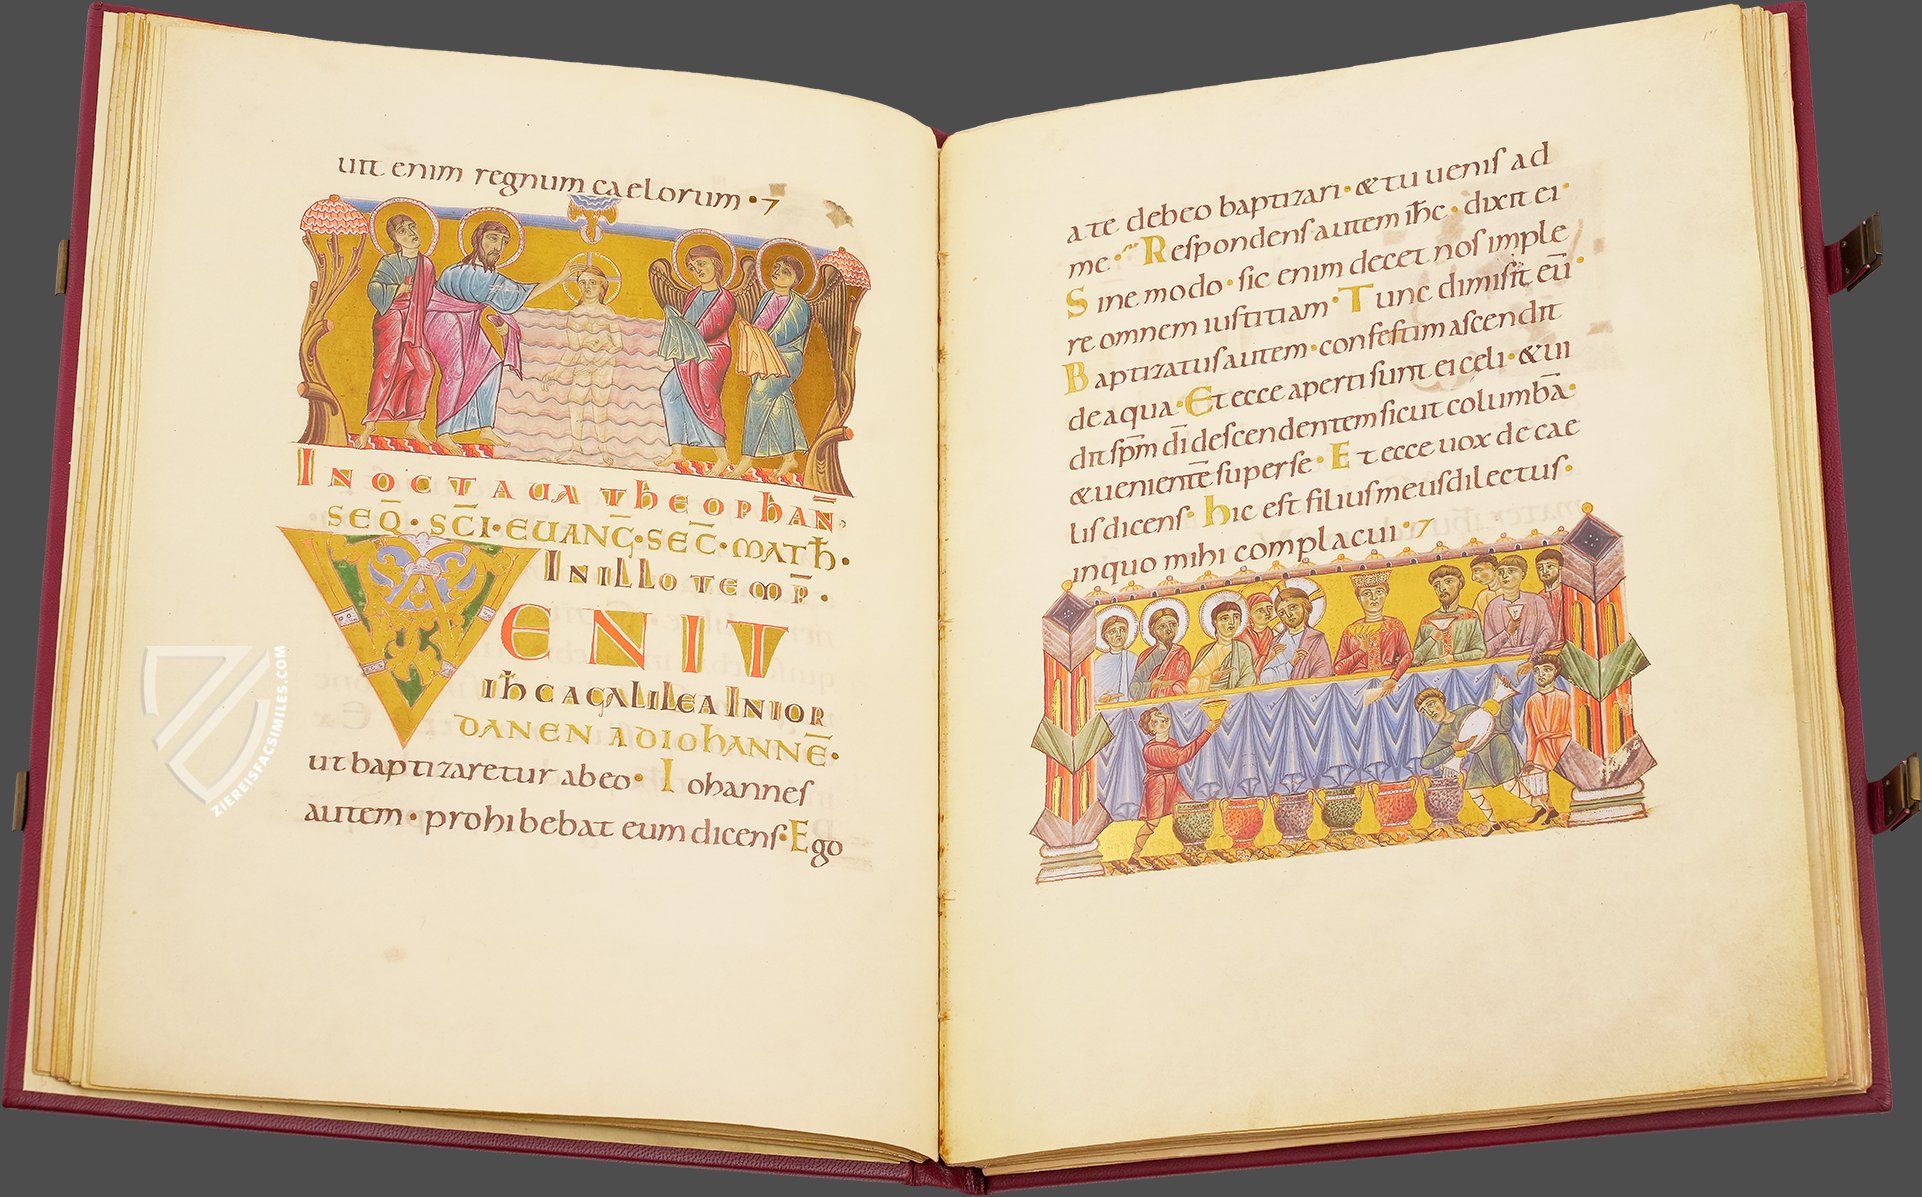 uit enim regnum caelorum·7
IN OCTAVA THEOPHAÑ·
SEQ̄· SC̄I· EUANḠ· SEC̄· MATH̄·
IN ILLO TEMP̄·
VENIT
IH̄C A GALILEA IN IOR
DANEN AD IOHANNĒ·
ut baptizaretur ab eo· Iohannes
autem· prohibebat eum dicens· Ego
a te debeo baptizari· & tu uenis ad
me· Respondens autem ih̄c· dixit ei·
Sine modo· sic enim decet nos imple
re omnem iustitiam· Tunc dimisit eū·
Baptizatus autem· confestim ascendit
de aqua· Et ecce aperti sunt ei celi· & ui
dit sp̄m dī descendentem sicut columbā·
& uenientē super se· Et ecce uox de cae
lis dicens· hic est filius meus dilectus·
in quo mihi complacui·7
ZIEREISFACSIMILES.COM